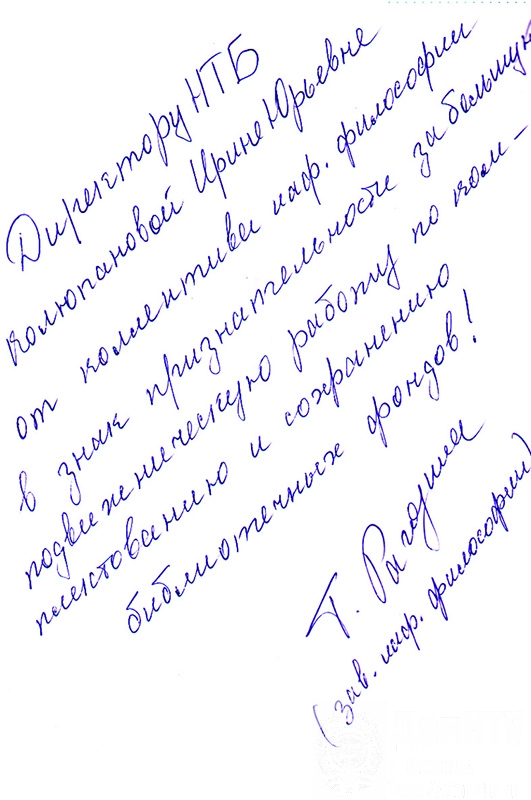 Директору НТБ
Колюпановой Ирине Юрьевне
от коллектива каф. философии
в знак признательности за большую
подвижническую работу по ком-
плектованию и сохранению
библиотечных фондов!
Т.
(зав. каф. философии)